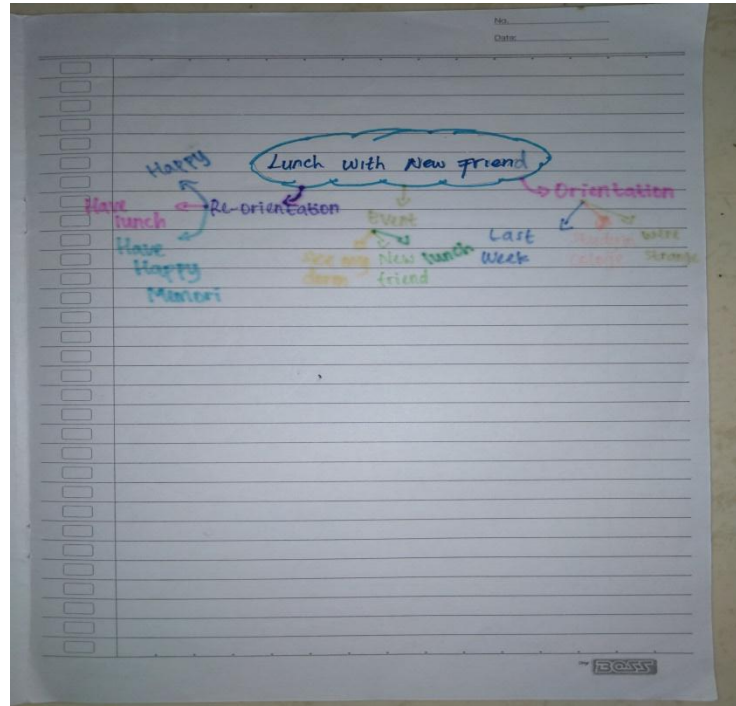 No.
Date:
Lunch with New Friend
Happy
Have
lunch
Re-orientation
Have
Happy
Memori
Event
New
friend
lunch
Orientation
Last
Week
were
strange
BOSS